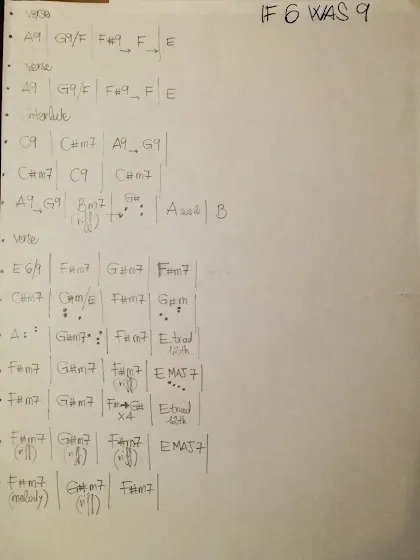 IF 6 WAS 9
verse
A9 | G9/F | F#9 → F → | E
verse
A9 | G9/F | F#9 → F | E
interlude
C9 | C#m7 | A9 → G9 |
C#m7 | C9 | C#m7 |
A9 → G9 | Bm7 (riff) → G# | A sus2 | B
verse
E 6/9 | F#m7 | G#m7 | F#m7 |
C#m7 | C#m/E | F#m7 | G#m |
A | G#m7 | F#m7 | E triad 12th
F#m7 | G#m7 | F#m7 (riff) | E MAJ7 |
F#m7 | G#m7 | F# → G# x4 | E triad 12th
F#m7 (riff) | G#m7 (riff) | F#m7 (riff) | E MAJ7 |
F#m7 (melody) | G#m7 (riff) | F#m7 |